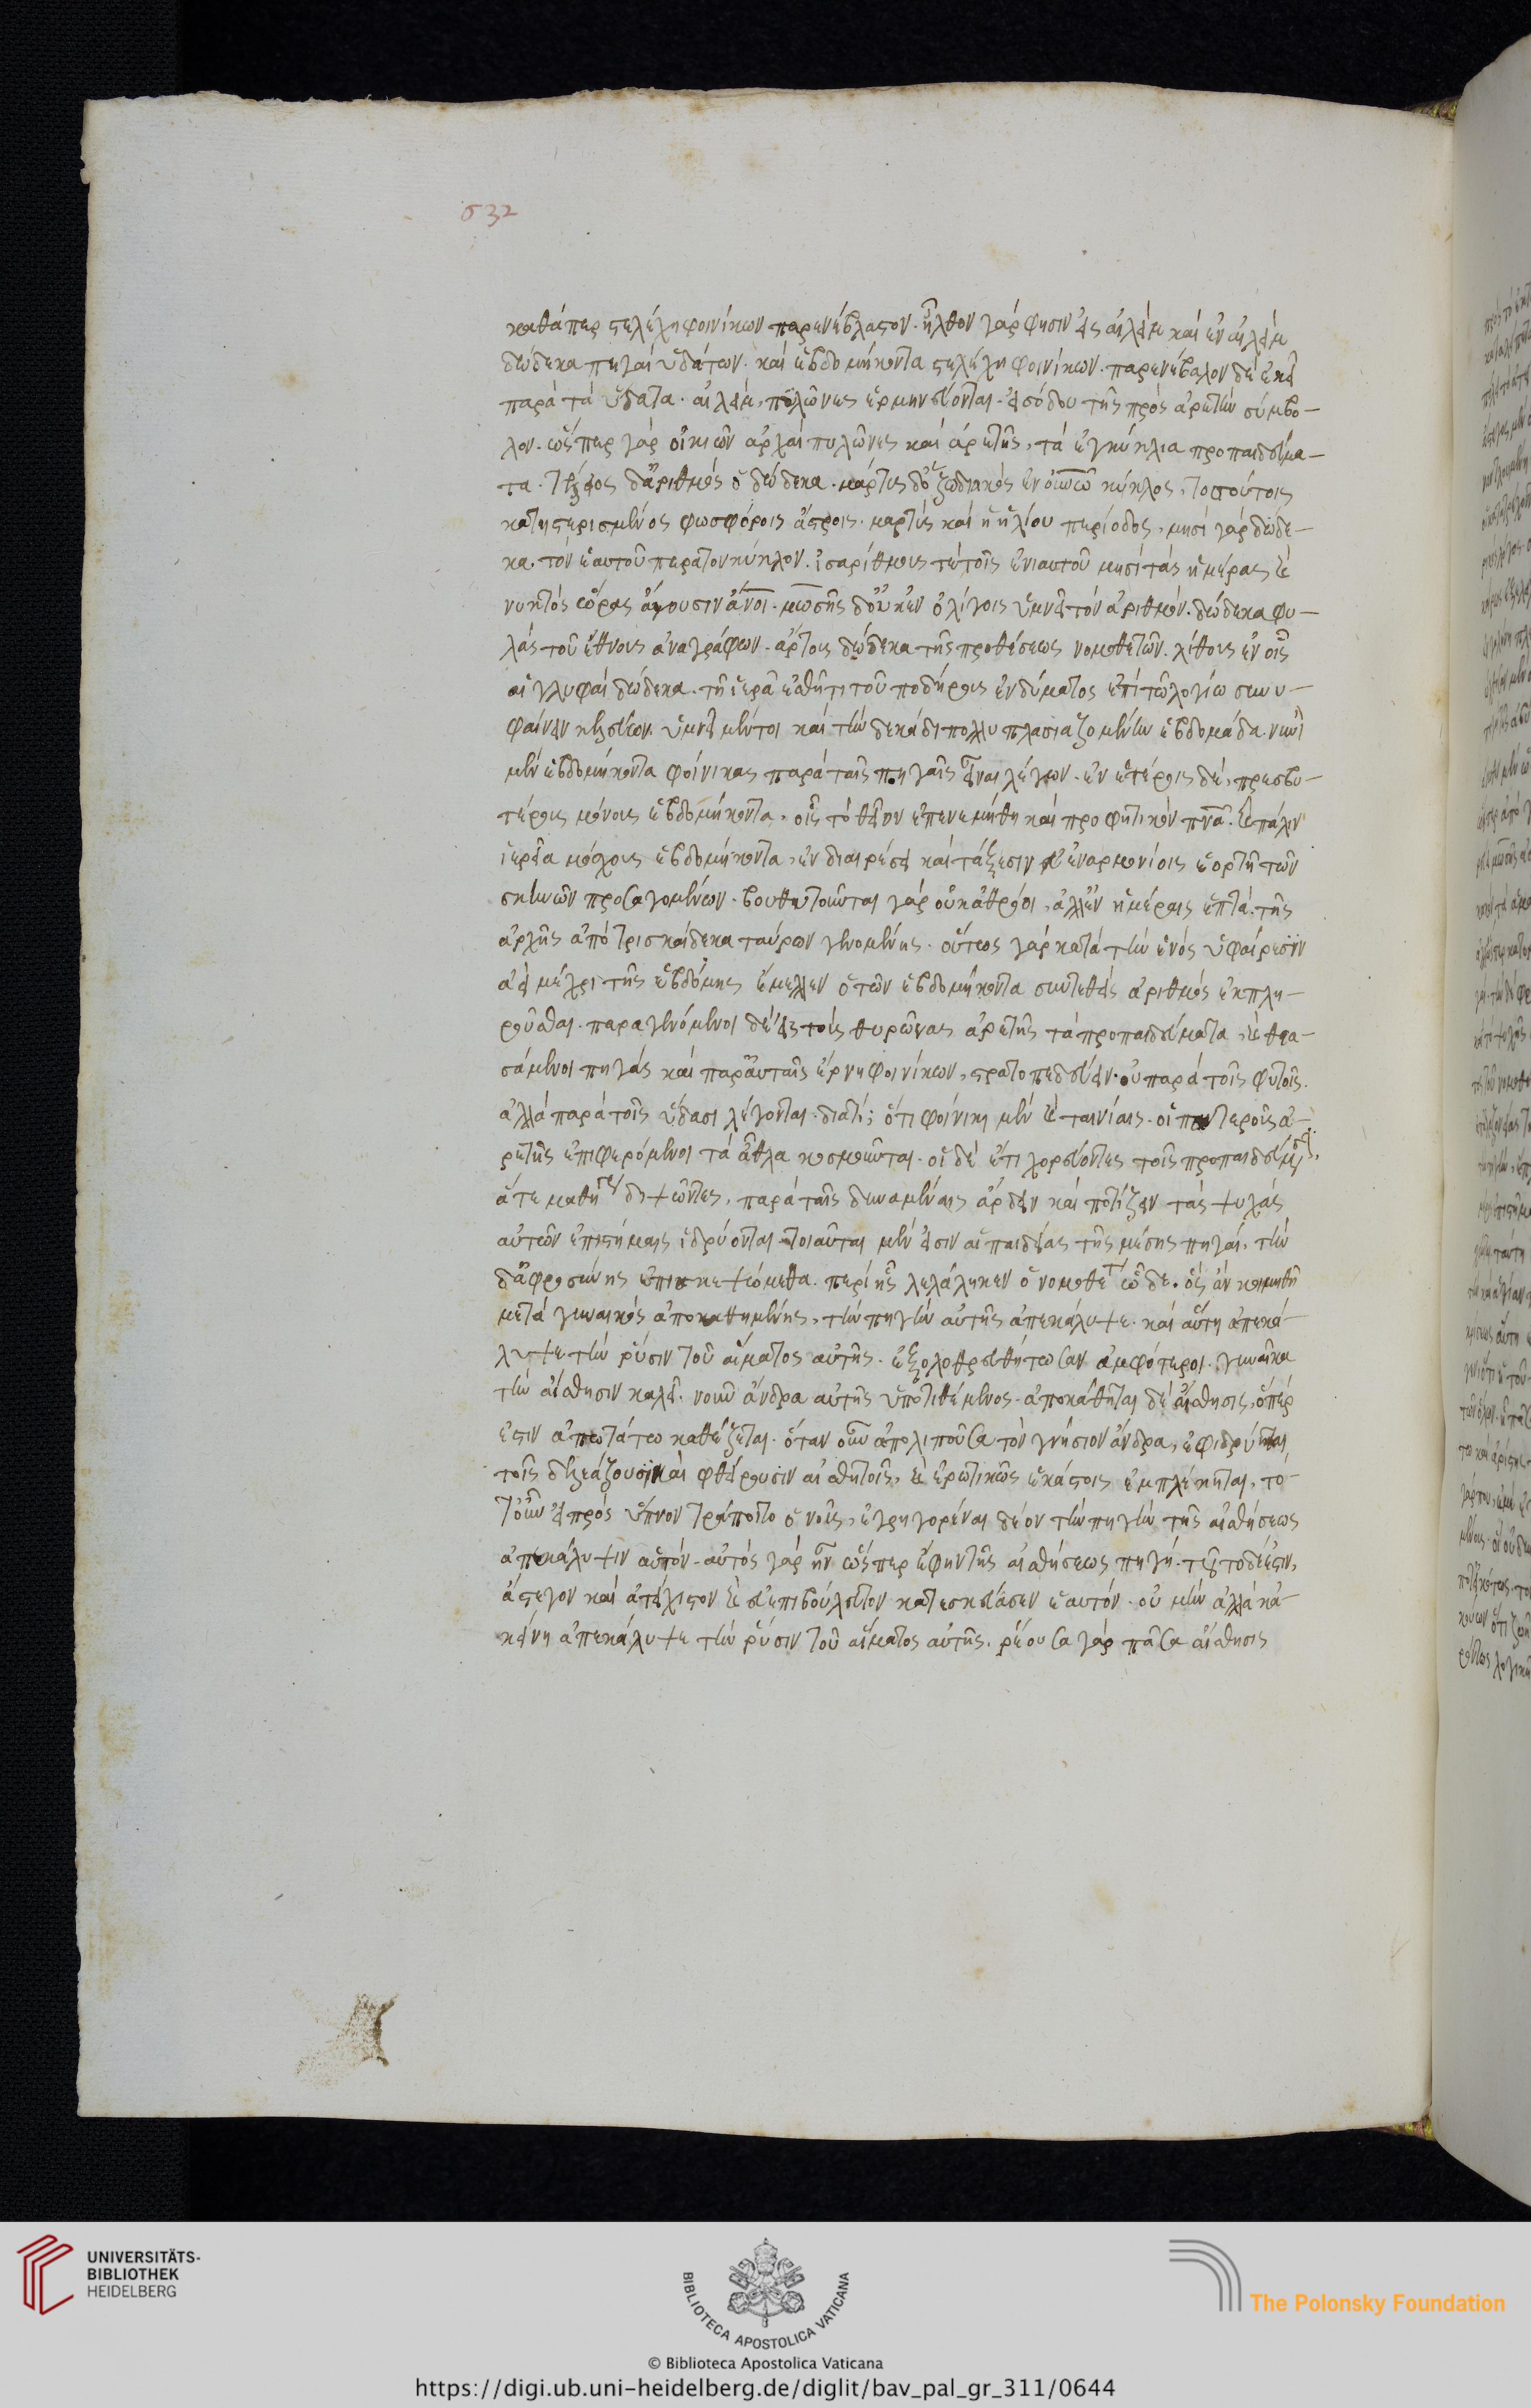 632
καθάπερ στελέχη φοινίκων παρενέβλαστον. ἦλθον γάρ φησιν εἰς αἰλεὶμ καὶ ἐν αἰλεὶμ
δώδεκα πηγαὶ ὑδάτων. καὶ ἑβδομήκοντα στελέχη φοινίκων. παρενέβαλον δὲ ἐκεῖ
παρὰ τὰ ὕδατα. αἰλεὶμ, πυλῶνες ἑρμηνεύονται. εἰσόδου τῆς πρὸς ἀρετὴν σύμβο-
λον. ὥσπερ γὰρ οἰκιῶν ἀρχαὶ πυλῶνες καὶ ἀρετῆς, τὰ ἐγκύκλια προπαιδεύμα-
τα. τέλειος δ' ἀριθμὸς ὁ δώδεκα. μάρτυς δ' ὁ ζωδιακὸς ἐν οὐνῶ κύκλος, τοσούτοις
κατηστερισμένος φωσφόροις ἄστροις. μαρτὺς καὶ ἡ ἡλίου περίοδος, μησὶ γὰρ δώδε-
κα. τὸν ἑαυτοῦ περατοῖ κύκλον. ἰσαρίθμους τε τοῖς ἐνιαυτοῦ μησὶ τὰς ἡμέρας καὶ
νυκτὸς ὥρας ἄγουσιν ἄνοι. μωσῆς δ' οὐκ ἐν ὀλίγοις ὑμνεῖ τὸν ἀριθμόν. δώδεκα φυ-
λὰς τοῦ ἔθνους ἀναγράφων. ἄρτους δώδεκα τῆς προθέσεως νομοθετῶν. λίθους ἐν οἷς
αἱ γλυφαὶ δώδεκα. τῇ ἱερᾷ ἐσθῆτι τοῦ ποδήρους ἐνδύματος ἐπὶ τῷ λογίῳ συνυ-
φαίνειν κελεύων. ὑμνεῖ μέντοι καὶ τὴν δεκάδι πολλυπλασιαζομένην ἑβδομάδα. νυνὶ
μὲν ἑβδομήκοντα φοίνικας παρὰ ταῖς πηγαῖς εἶναι λέγων. ἐν ἑτέροις δέ, πρεσβυ-
τέροις μόνοις ἑβδομήκοντα, οἷς τὸ θεῖον ἐπενεμήθη καὶ προφητικὸν πνᾶ. καὶ πάλιν
ἱερεῖα μόσχους ἑβδομήκοντα, ἐν διαιρέσει καὶ τάξεσιν ἐναρμονίοις ἑορτῇ τῶν
σκηνῶν προσαγομένων. βουθυτοῦνται γὰρ οὐκ ἀθρόοι, ἀλλ' ἐν ἡμέραις ἑπτά. τῆς
ἀρχῆς ἀπὸ τρισκαίδεκα ταύρων γενομένης. οὕτως γὰρ κατὰ τὴν ἑνὸς ὑφαίρεσιν
ἀεὶ μέχρι τῆς ἑβδόμης ἔμελλεν ὁ τῶν ἑβδομήκοντα συντεθεὶς ἀριθμὸς ἐκπλη-
ροῦσθαι. παραγενόμενοι δὲ εἰς τοὺς θυρῶνας ἀρετῆς τὰ προπαιδεύματα, καὶ θεα-
σάμενοι πηγὰς καὶ παρ' αὐταῖς ἔρνη φοινίκων, στρατοπεδεύειν. οὐ παρὰ τοῖς φυτοῖς.
ἀλλὰ παρὰ τοῖς ὕδασι λέγονται. διατί; ὅτι φοίνικι μὲν καὶ ταινίαις. οἱ παντελοῦς ἀ-
ρετῆς ἐπιφερόμενοι τὰ ἆθλα κοσμοῦνται. οἱ δὲ ἔτι χορεύοντες τοῖς προπαιδεύμ
ἅτε μαθή διψῶντες, παρὰ ταῖς δυναμέναις ἄρδειν καὶ ποτίζειν τὰς ψυχὰς
αὐτῶν ἐπιστήμαις ἱδρύονται. τοιαῦται μέν εἰσιν αἱ παιδείας τῆς μέσης πηγαί. τὴν
δ' ἀφροσύνης ἐπισκεψώμεθα. περὶ ἧς λελάληκεν ὁ νομοθέτ ὧδε. ὃς ἂν κοιμηθῇ
μετὰ γυναικὸς ἀποκαθημένης, τὴν πηγὴν αὐτῆς ἀπεκάλυψε. καὶ αὕτη ἀπεκά-
λυψε τὴν ῥύσιν τοῦ αἵματος αὐτῆς. ἐξολοθρευθήτωσαν ἀμφότεροι. γυναῖκα
τὴν αἴσθησιν καλεῖ. νοῦν ἄνδρα αὐτῆς ὑποτιθέμενος. ἀποκάθηται δὲ αἴσθησις, ὅπέρ
ἐστιν ἀπωτάτω καθέζεται. ὅταν οὖν ἀπολιποῦσα τὸν γνήσιον ἄνδρα, ἐφιδρύηται
τοῖς δελεάζουσι καὶ φθείρουσιν αἰσθητοῖς, καὶ ἐρωτικῶς ἑκάστοις ἐμπλέκηται, τό-
τ' οὖν εἰ πρὸς ὕπνον τράποιτο ὁ νοῦς, ἐγρηγορέναι δέον τὴν πηγὴν τῆς αἰσθήσεως
ἀπεκάλυψιν αὑτόν. αὐτὸς γὰρ ἦν ὥσπερ ἔφην τῆς αἰσθήσεως πηγή. τοῦτο δέ ἐστιν,
ἄστεγον καὶ ἀτείχιστον καὶ εὐεπιβούλευτον κατεσκεύασεν ἑαυτόν. οὐ μὴν ἀλλὰ κἀ-
κείνη ἀπεκάλυψε τὴν ῥύσιν τοῦ αἵματος αὐτῆς. ῥέουσα γὰρ πᾶσα αἴσθησις
UNIVERSITÄTS-
BIBLIOTHEK
HEIDELBERG
BIBLIOTECA APOSTOLICA VATICANA
The Polonsky Foundation
© Biblioteca Apostolica Vaticana
https://digi.ub.uni-heidelberg.de/diglit/bav_pal_gr_311/0644